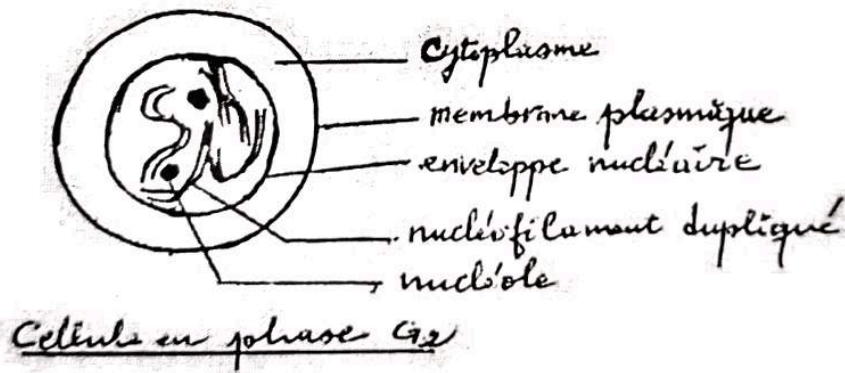 Cytoplasme
membrane plasmique
enveloppe nucléaire
nucléofilament dupliqué
nucléole
Cellule en phase G2